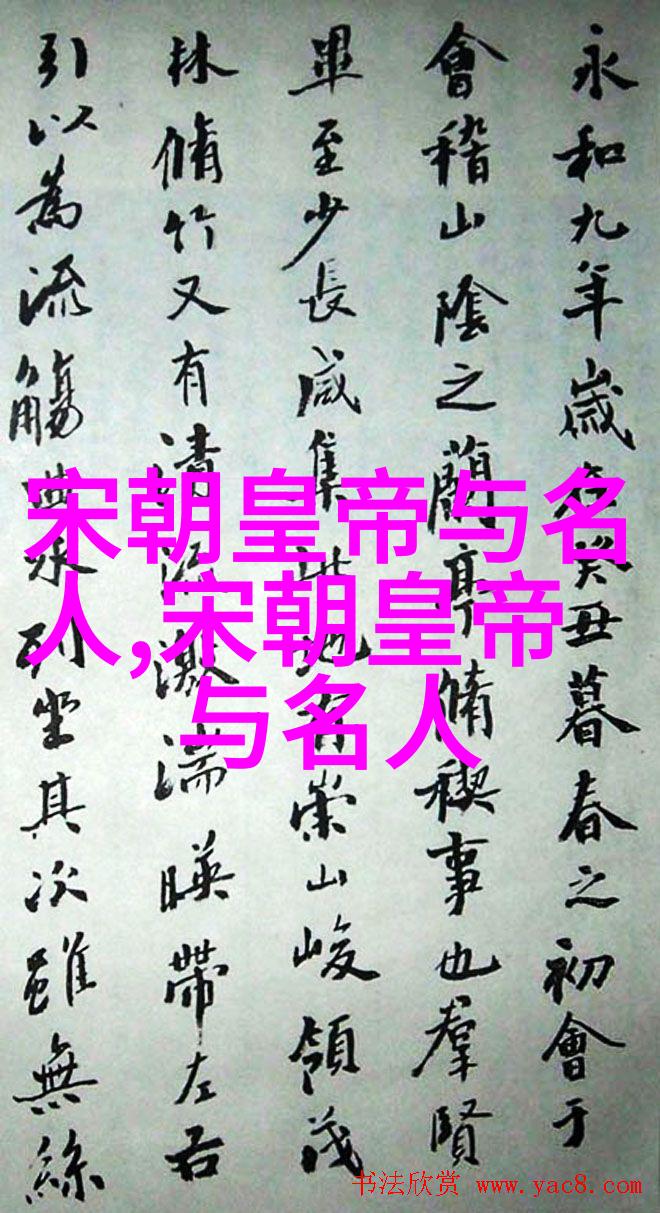 永和九年歲在癸丑暮春之初會于
會稽山陰之蘭亭脩稧事也羣賢
畢至少長咸集此地有崇山峻領茂
林脩竹又有清流激湍暎帶左右
引以為流觴曲水列坐其次雖無絲
宋朝皇帝与名
人,宋朝皇帝
与名人
书法欣赏 www.yac8.com